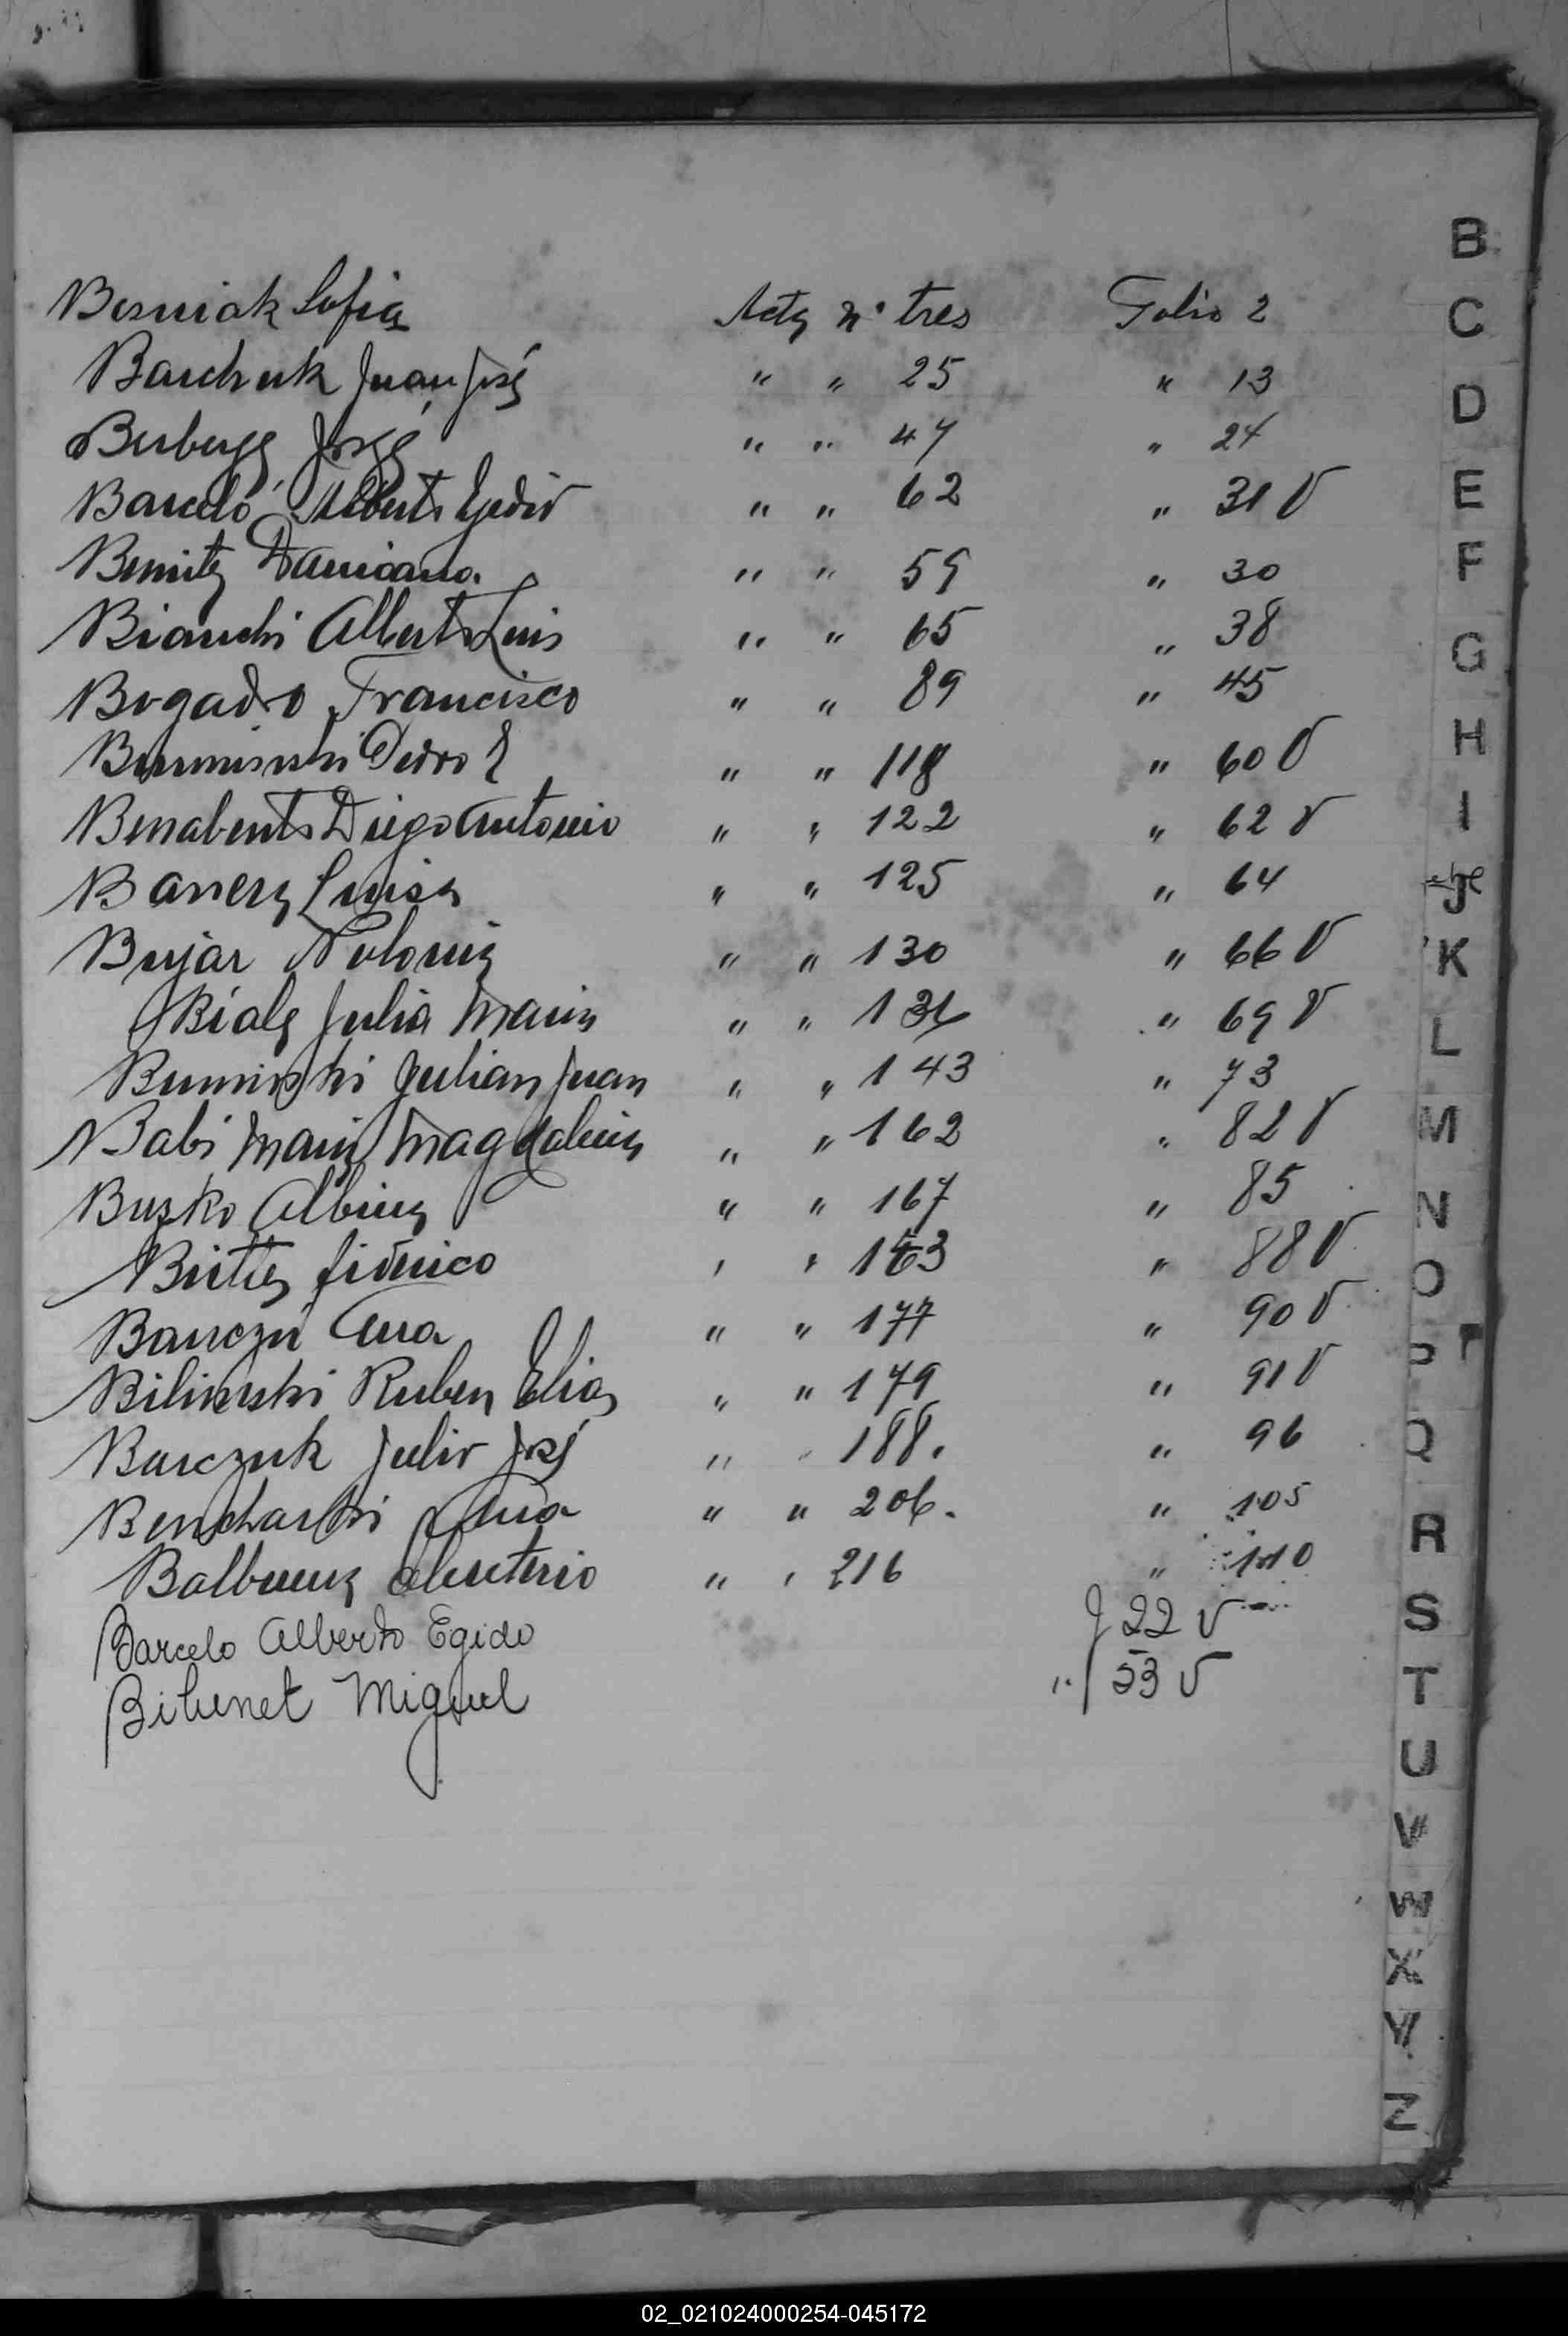 Besniak Sofia Acta nº tres Folio 2
Barchuk Juan José " " 25 " 13
José " " 47 " 24
Barceló Alberto Egidio " " 62 " 31 V
Benitez Damiana " " 59 " 30
Bianchi Alberto Luis " " 65 " 38
Bogado Francisco " " 89 " 45
Pedro E " " 118 " 60 V
Benabento Diego Antonio " " 122 " 62 V
Luisa " " 125 " 64
Bujar Polonia " " 130 " 66 V
Bialy Julia Maria " " 131 " 69 V
Julian Juan " " 143 " 73
Babi Maria Magdalena " " 162 " 82 V
Buzko Albina " " 167 " 85
" " 173 " 88 V
Ana " " 177 " 90 V
Bilinski Ruben Elias " " 179 " 91 V
Barczuk Julio José " " 188. " 96
Bencharski Ana " " 206. " 105
Balbuena Eleuterio " " 216 " 110
Barcelo Alberto Egido J 22 V
Bilunet Miguel " / 53 V
B
C
D
E
F
G
H
I
J
K
L
M
N
O
P
Q
R
S
T
U
V
W
X
Y
Z
02_021024000254-045172